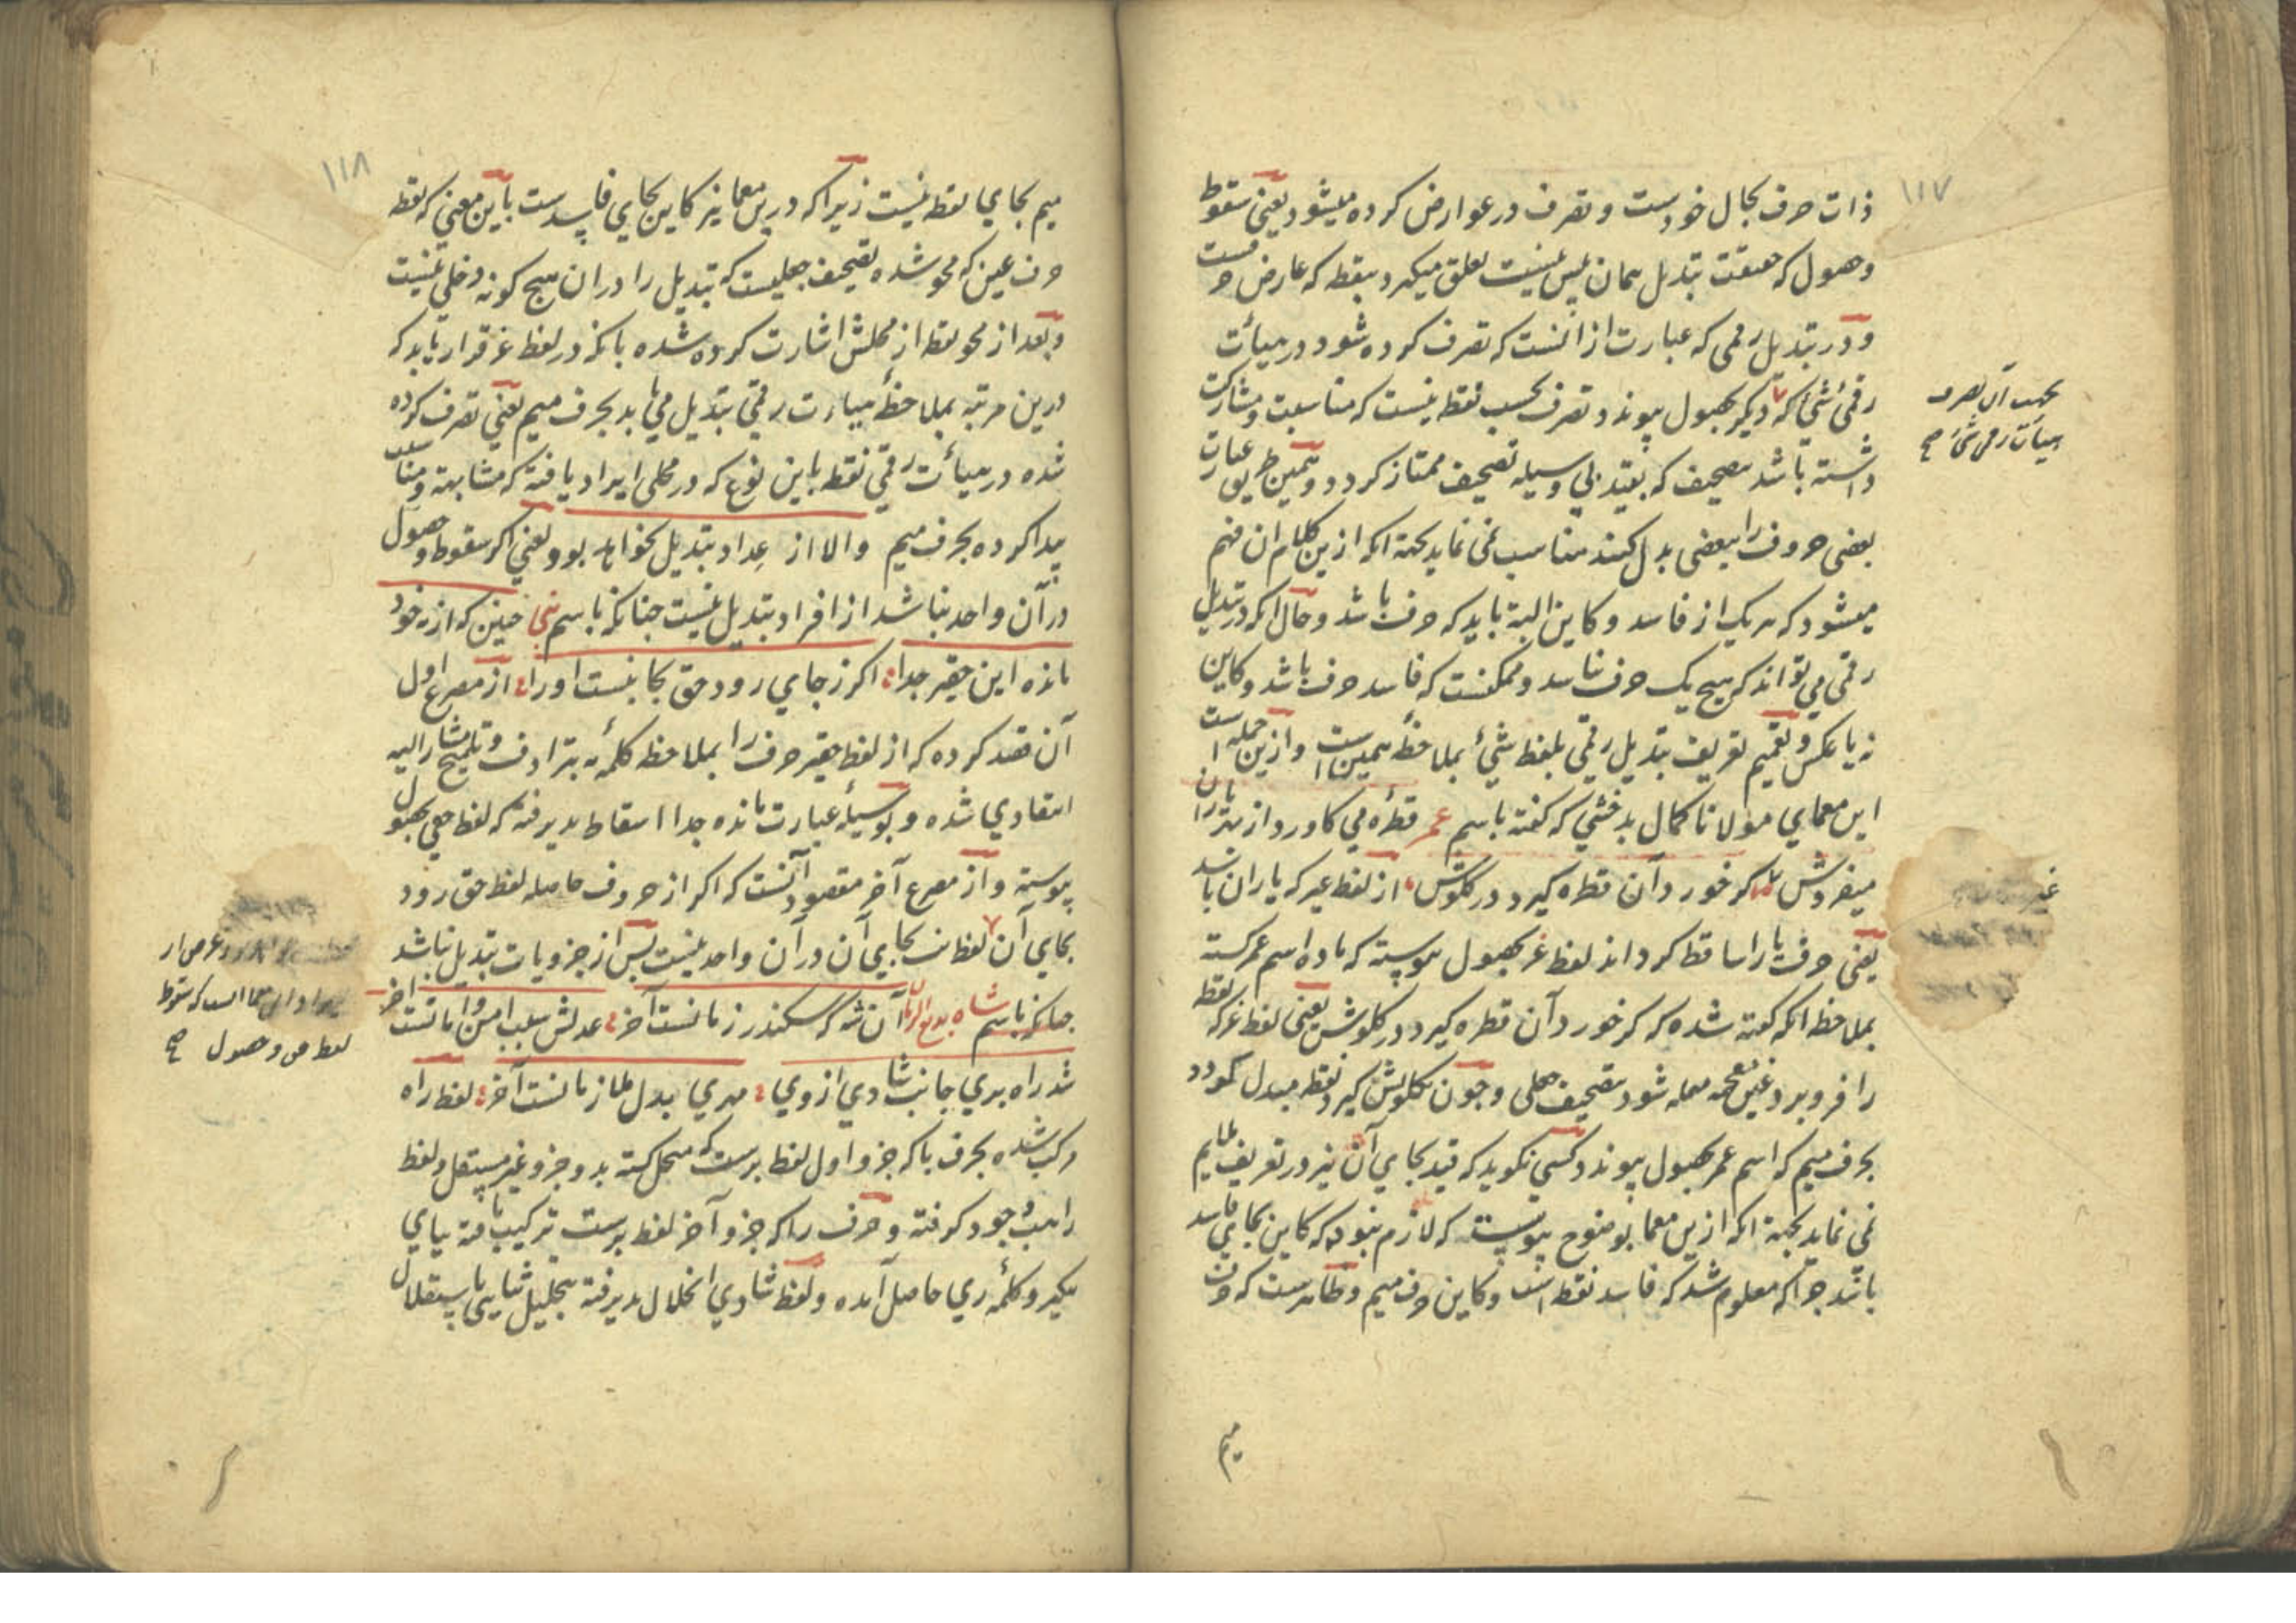 ۱۱۷
ذات حرف بحال خودست و تصرف در عوارض کرده میشود یعنی سقوط
و حصول که حقیقت تبدیل همان بیش نیست تعلق میگیرد بنقطه که عارض حرفست
و در تبدیل رقمی که عبارت از آنست که تصرف کرده شود در هیأت
رقمی شئ که دیگر بحصول پیوندد تصرف بحسب نقطه نیست که مناسبت و مشارکت
داشته باشد بتصحیف که بقید بی وسیله تصحیف ممتاز گردد و همین طریق عبارت
بعضی حروف را ببعضی بدل کنند مناسب نمی نماید بجهة آنکه ازین کلام آن فهم
میشود که هر یک از فاسد و کاین البته باید که حرف باشد و حال آنکه در تبدیل
رقمی می تواند که هیچ یک حرف نباشد و ممکنست که فاسد حرف باشد و کاین
نه یا بعکس و تعمیم تعریف تبدیل رقمی بلفظ شئ بملاحظهٔ همین است و ازین جمله است
این معمای مولانا کمال بدخشی که گفته باسم عمر قطره می کاورد از بهر یاران
میفروش گر خورد آن قطره گیرد در گلوش از لفظ غیر که یاران باشد
یعنی حرف یا را ساقط گرداند لفظ غر بحصول پیوسته که ماده اسم عمر گشته
بملاحظه آنکه گفته شده که گر خورد آن قطره گیرد در گلوش یعنی لفظ غر که نقطه
را فرو برد غین معجمه مهمله شود بتصحیف جعلی و چون بگلویش گیرد نقطه مبدل گردد
بحرف میم که اسم عمر بحصول پیوندد و کسی نگوید که قید بجای آن نیز در تعریف ملایم
نمی نماید بجهة آنکه ازین معما بوضوح پیوست که لازم نبود که کاین بجای فاسد
باشد چرا که معلوم شد که فاسد نقطه است و کاین حرف میم و ظاهرست که حرف
میم
بجهت آن تصرف
هیأت رقمی شئ صح
غیر
۱۱۸
میم بجای نقطه نیست زیرا که درین معما نیز کاین بجای فاسدست باین معنی که نقطه
حرف عین که محو شده تصحیف جعلیست که تبدیل را در ان هیچ گونه دخلی نیست
و بعد از محو نقطه از محلش اشارت کرده شده بانکه در لفظ غر قرار یابد که
درین مرتبه بملاحظهٔ هیاءت رقمی تبدیل می یابد بحرف میم یعنی تصرف کرده
شده در هیأت رقمی نقطه باین نوع که در محلی ایراد یافته که مشابهة و مناسبت
پیدا کرده بحرف میم والا از عداد تبدیل نخواهد بود و یعنی اگر سقوط و حصول
در آن واحد نباشد از افراد تبدیل نیست چنانکه باسم حنین که از به خود
مانده این حقیر جدا اگر ز جای رود حق بجا نیست او را از مصرع اول
آن قصد کرده که از لفظ حقیر حرف را بملاحظه کلمهٔ به بترادف و تلمیح مشار الیه
انتقادی شده و بوسیلهٔ عبارت مانده جدا اسقاط پذیرفته که لفظ حقی بحصول
پیوسته و از مصرع آخر مقصود آنست که اگر از حروف حاصله لفظ حق رود
بجای آن لفظ نیست بجای آن در آن واحد نیست پس از جزویات تبدیل نباشد
چنانکه باسم شاه بدیع الزمان آن شه که سکندر زمانست آخر عدلش سبب امن و امانست آخر
شد راه بری جانب شادی از وی مهری بدل ملازمانست آخر لفظ راه
مرکب شده بحرف با که جزو اول لفظ برست که منحل گشته بدو جزو غیر مستقل و لفظ
راهب وجود گرفته و حرف را که جزو آخر لفظ برست ترکیب یافته بیای
دیگر و کلمهٔ ری حاصل آمده و لفظ شادی انحلال پذیرفته بتحلیل ثنایی باستقلال
لفظ من و حصول صح